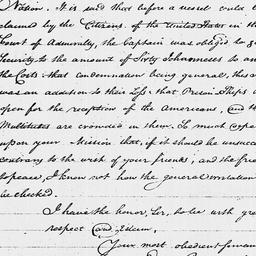 Nation. It is said that before a vessel could b
claimed by the Citizens of the United States in th
Court of Admiralty, the Captain was oblig'd to g
Security to the amount of Sixty Johannesses to an
the Costs that condemnation being general, this a
was an addition to their Loss: that Prison Ships w
open for the reception of the Americans, and th
Multitudes are crowded in them. So much depe
upon your Mission that, if it should be unsucc
contrary to the wish of your friends, and the frie
to peace, I know not how the general
be checked.
I have the honor, Sir, to be with gre
respect and Esteem,
Your most obedient servan